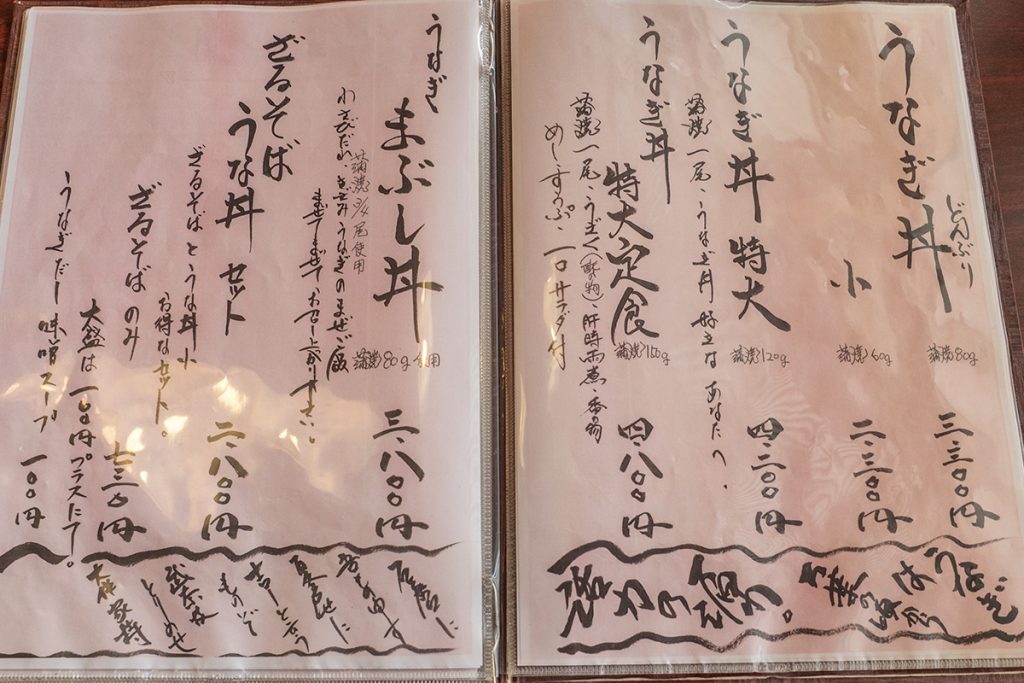 うなぎ丼
どんぶり
蒲焼80g
三・三〇〇円
小
蒲焼60g
二・三〇〇円
うなぎ丼 特大
蒲焼120g
四・二〇〇円
蒲焼一尾・うなぎ丼好きなあなたへ、
うなぎ丼
特大定食
蒲焼150g
四・八〇〇円
蒲焼一尾・うざく(酢物)肝時雨煮・香の物
めし・すいもの・サラダ付
うなぎは
栄養
うなぎ まぶし丼
蒲焼80g使用
三・八〇〇円
蒲焼3/4尾使用
わさびだれ、きざみうなぎのまぜご飯
まぜてまぜて、お召し上がり下さい。
ざるそば
うな丼 セット
二・八〇〇円
ざるそばとうな丼小
お得なセット。
ざるそばのみ
七三〇円
大盛は一〇〇円プラスにて。
うなぎだし味噌スープ
一〇〇円
石麿に
吾もの申す
夏やせに
吉しといふ
ものぞ
とりめせ
大伴家持